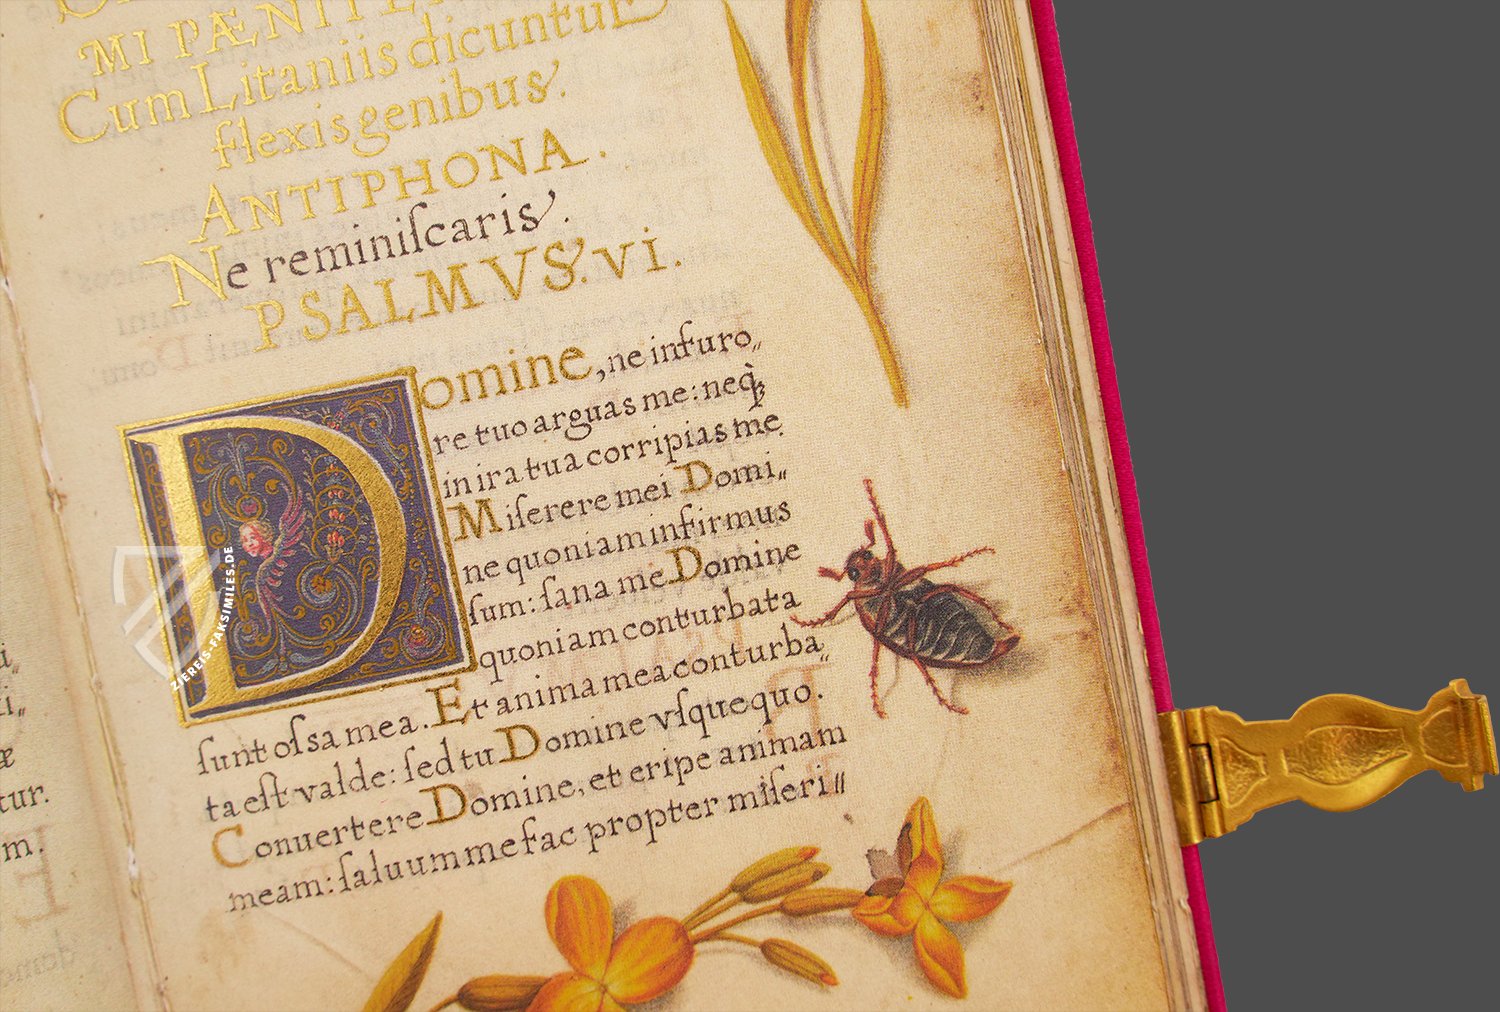 MI PÆNITEN
Cum Litaniis dicuntur
flexis genibus.
ANTIPHONA.
Ne reminiſcaris.
PSALMVS. VI.
Domine, ne in furo〃
re tuo arguas me: neq̃;
in ira tua corripias me.
Miſerere mei Domi〃
ne quoniam infirmus
ſum: ſana me Domine
quoniam conturbata
ſunt oſsa mea. Et anima mea conturba〃
ta eſt valde: ſed tu Domine vſquequo.
Conuertere Domine, et eripe animam
meam: ſaluum me fac propter miſeri〃
i〃
i〃
æ
tur.
m.
ZIEREIS-FAKSIMILES.DE